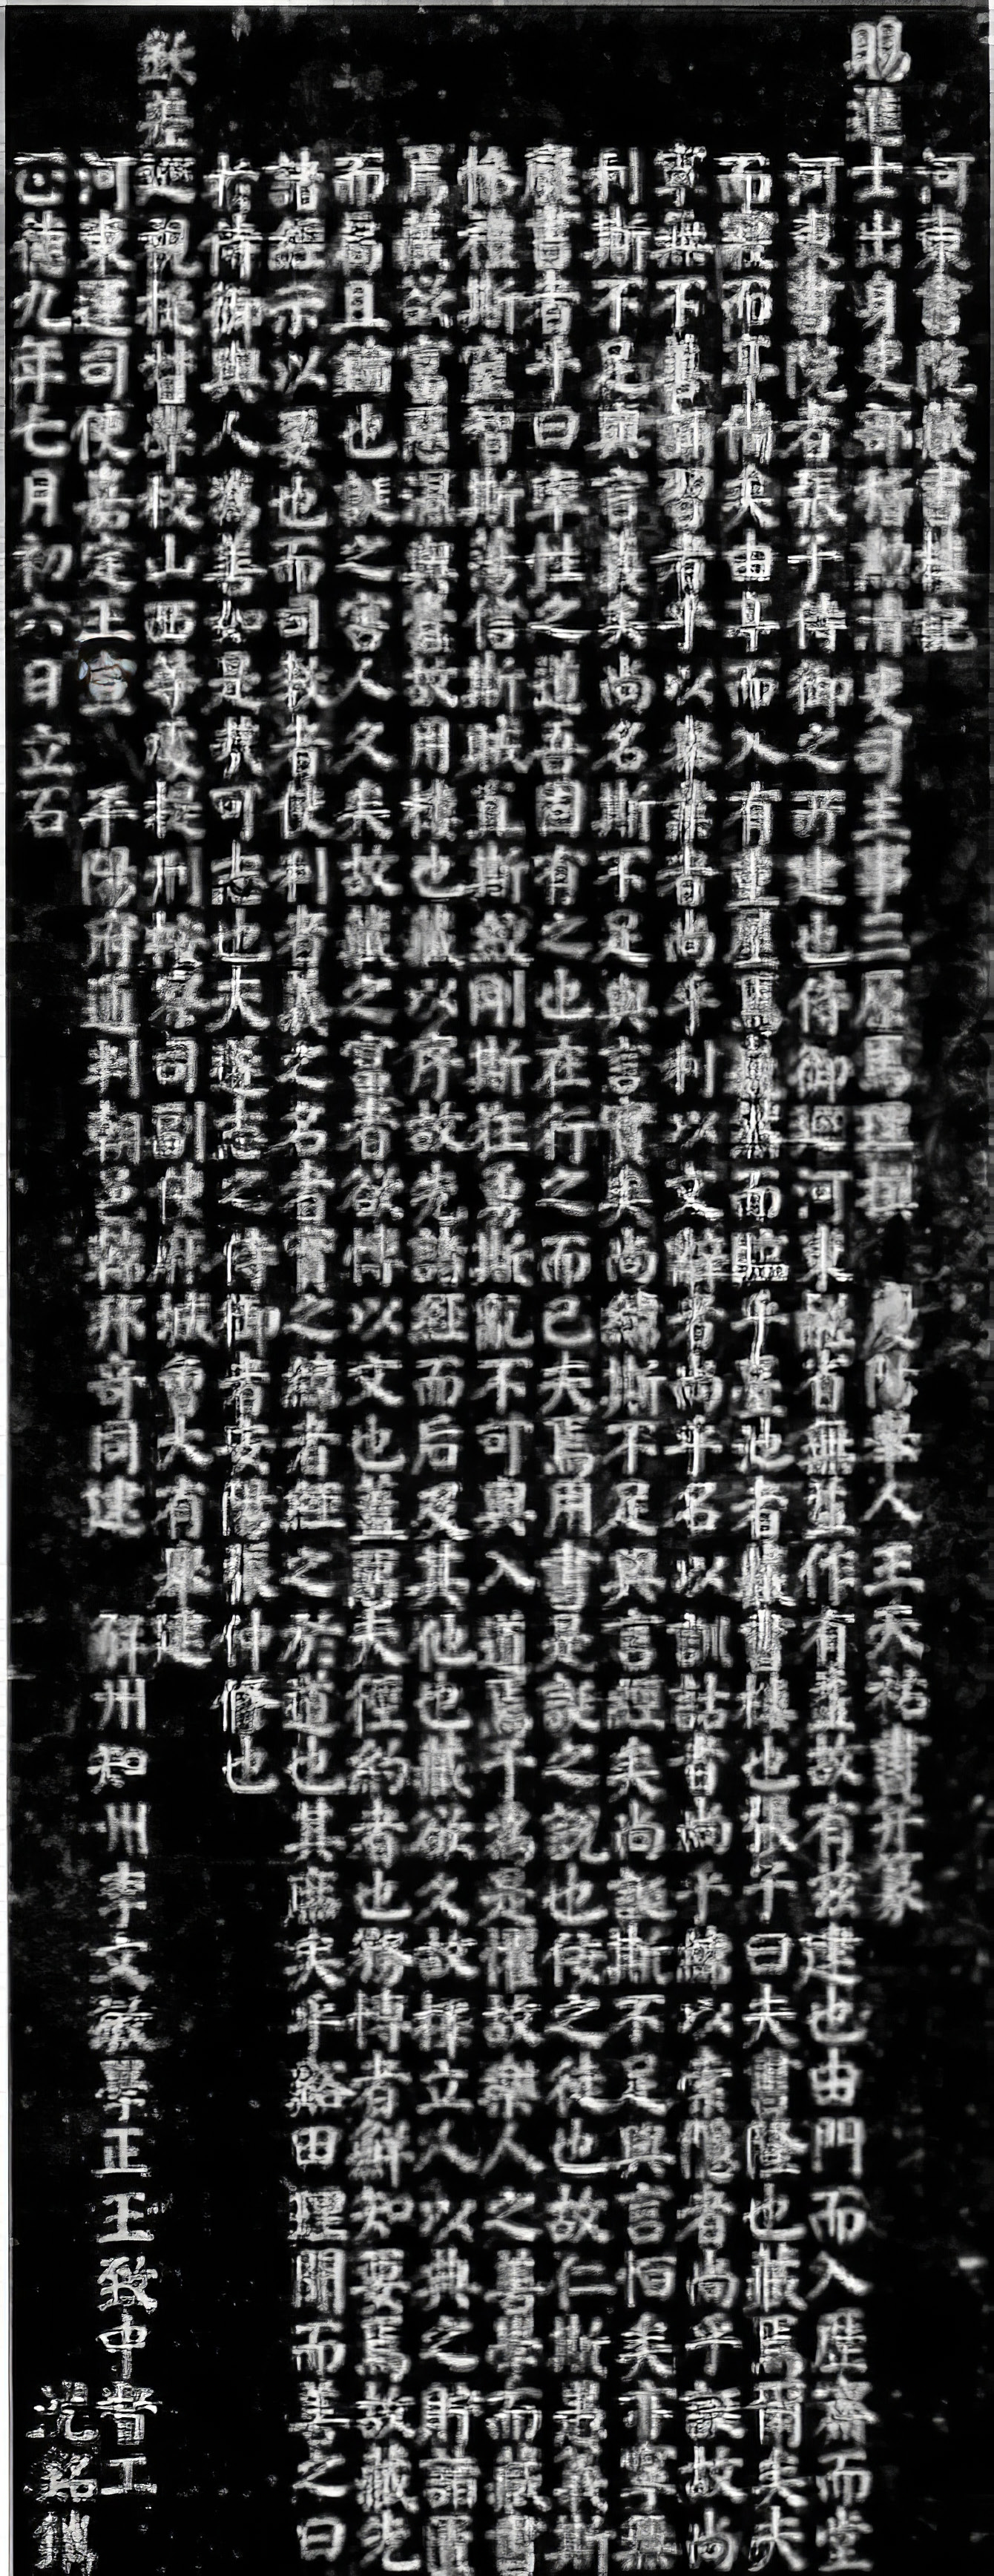 河東書院藏書樓記
賜進士出身吏部稽勳清吏司主事三原馬理 舉人王天祐書并篆
河東書院者張子侍御之所建也侍御廵河東鹺者無並作有舊故有茲建也由門而入陛躋而堂
而 而 循矣由阜而入有重屋巋然而臨乎墨池者藏書樓也張子曰夫書隆也藏焉爾夫夫
寧無下舊習者乎以舉業者尚乎利以文辭者尚乎名以訓詁者尚乎鑽以索隱者尚乎誕故尚
利斯不足與言義矣尚名斯不足與言實矣尚鑽斯不足與言經矣尚誕斯不足與言恒矣亦寧無
廢書者乎曰率性之道吾固有之也在行之而已夫焉用書是説之説也使之徒也故仁斯愚義斯
悖禮斯 智斯蕩信斯賊直斯絞剛斯狂勇斯亂不可與入道焉予為是懼故樂人之善學而藏書
焉藏欲富惡溷與 故用樓也藏以序故先諸經而后及其他也藏欲久故擇立人以典之貯諸匱
而扃且鑰也 之害人久矣故藏之富者欲博以文也豈 夫徑約者也務博者鮮知要焉故藏先
諸經示以要也而司教者使利者義之名者實之鑽者經之於道也其庶矣乎谿田理聞而善之曰
於侍御與人為善如是哉可志也夫 志之侍御者安陽張仲脩也
欽差廵視提督學校山西等處提刑按察司副使 大有舉建
河東運司使 平陽府通判朝邑 奇同建 解州知州李文敏學正王致中書工
正德九年七月初六日立石 光銘鐫